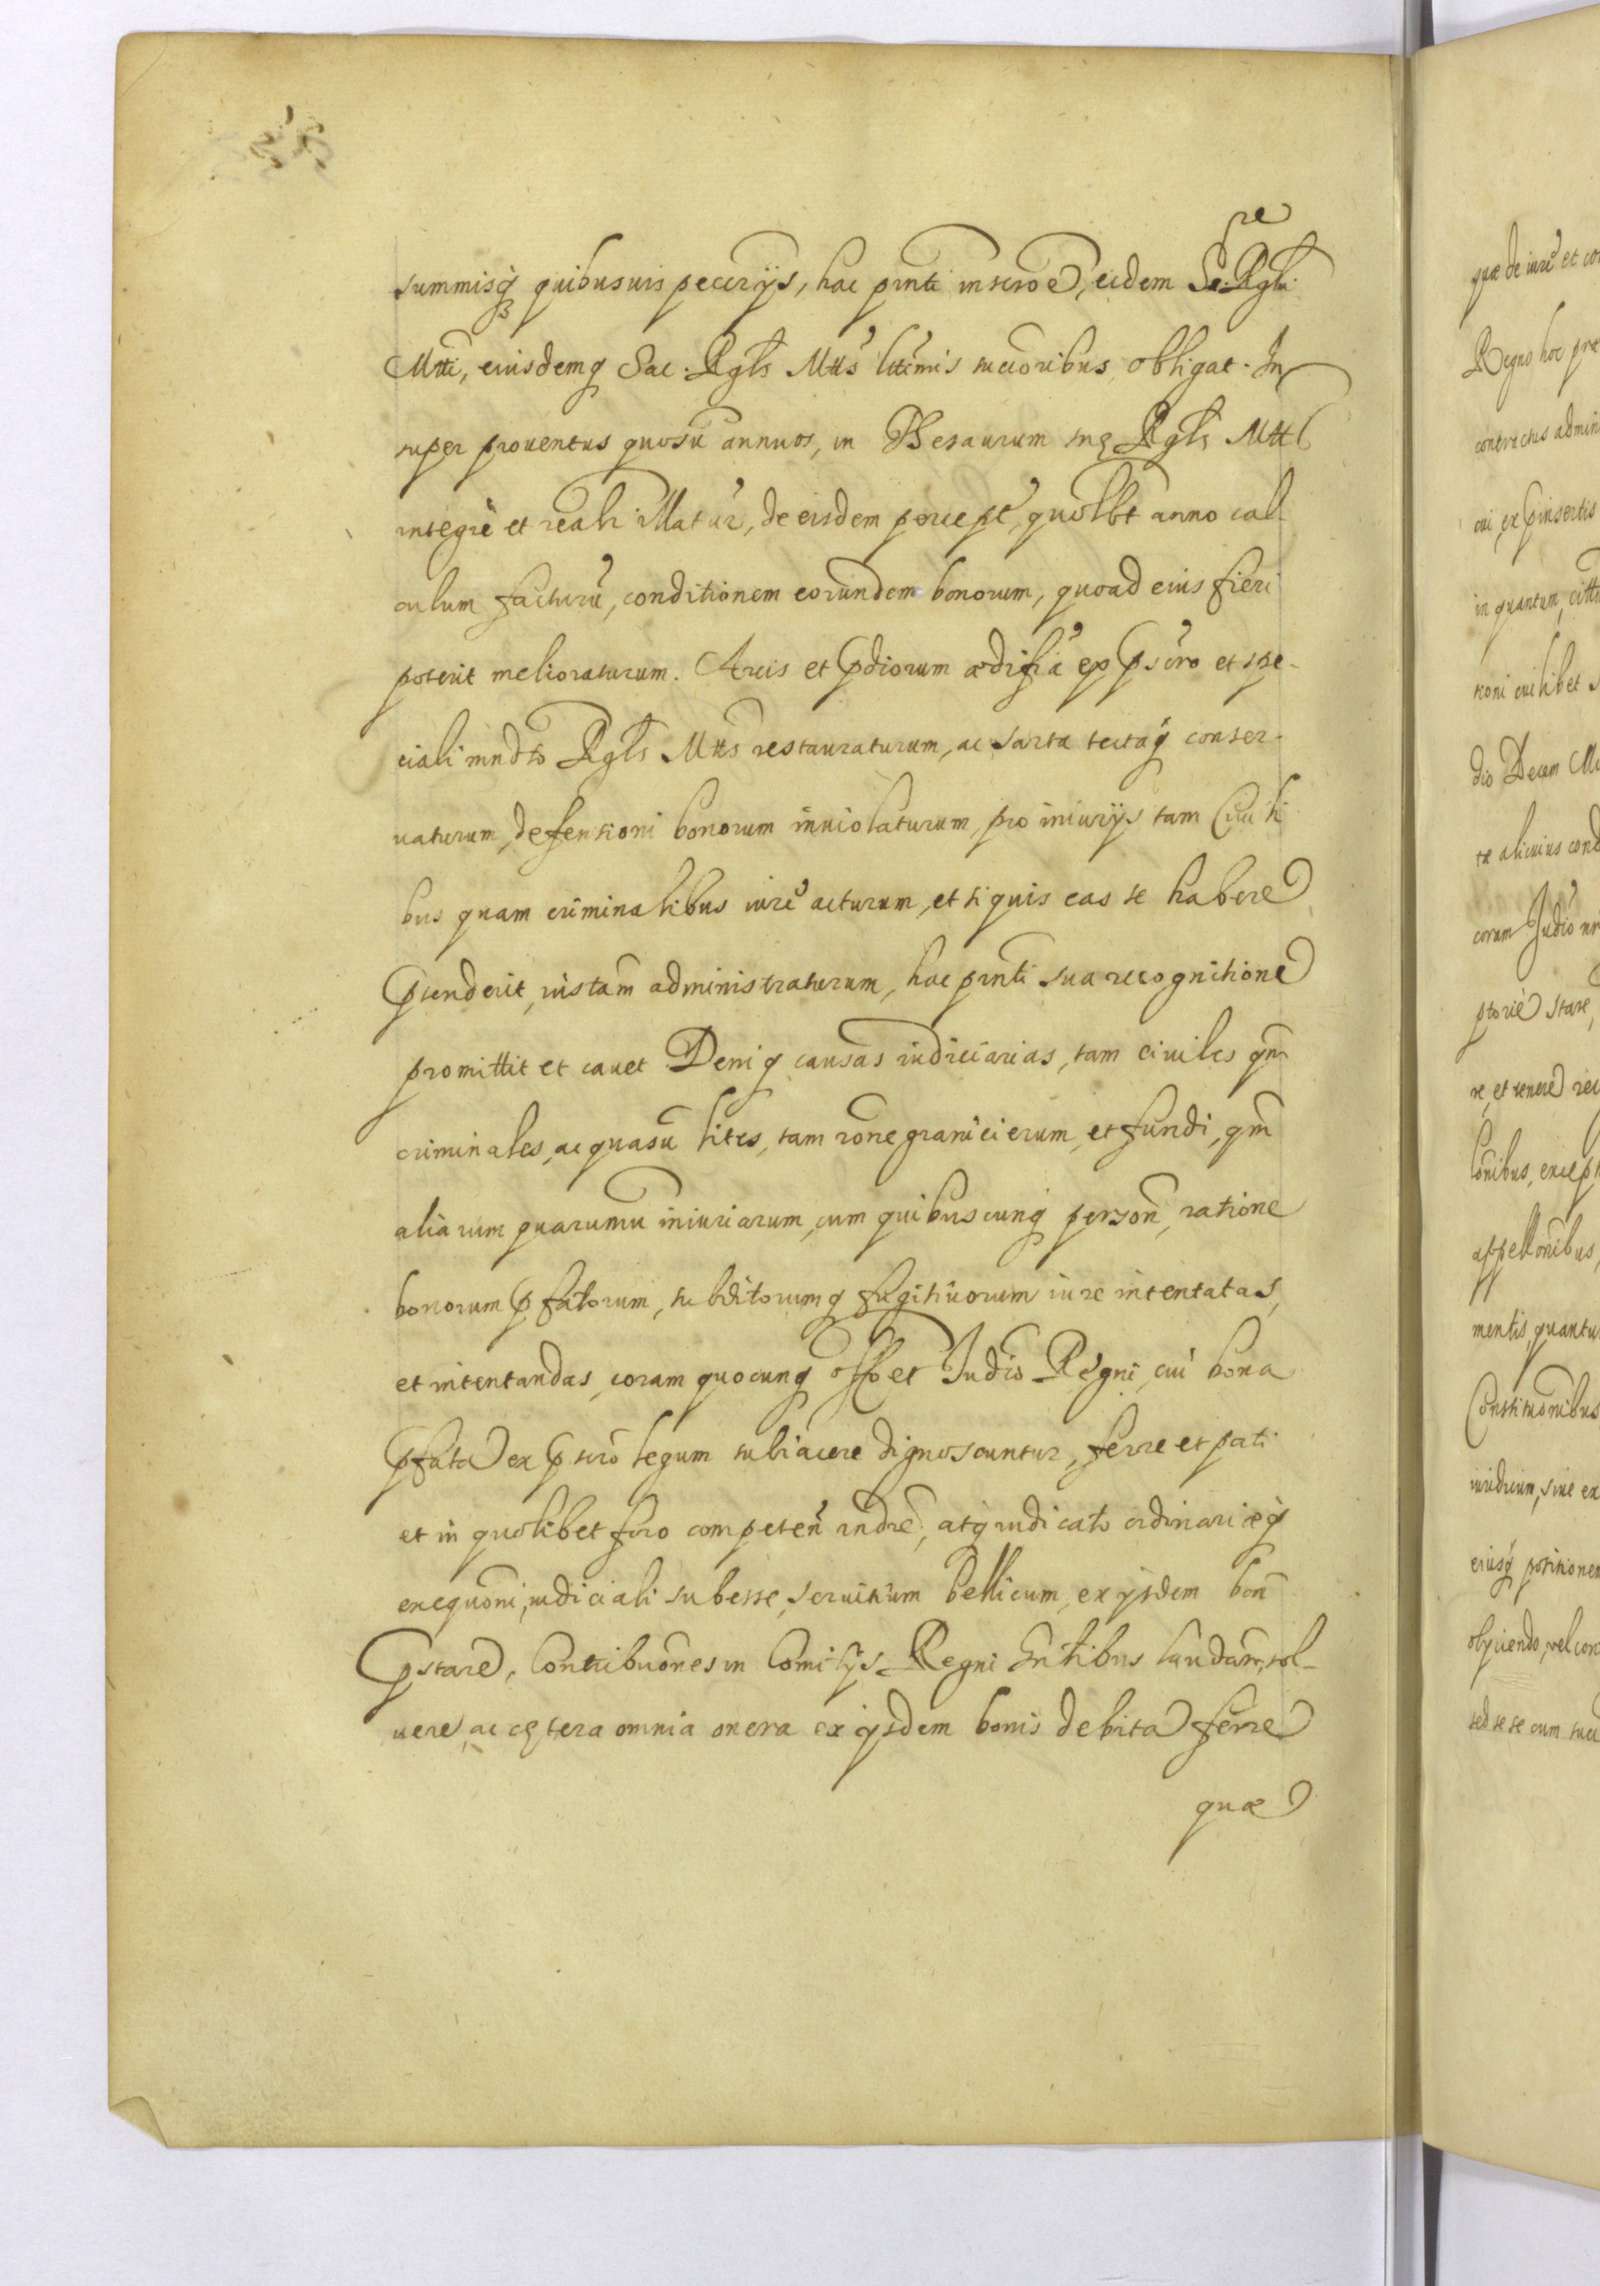 summisq quibusuis pecerijs, hac pnti inscroe, eidem Sac: Rgli
Mtti, eiusdemq Sac. Rgls Mtts lttimis succoribus obligat. In
super prouentus quosu annuos, in Thesaurum suę Rgls Mtt
integre et reali illatur, de eisdem percept, quolbt anno cal-
culum facturu, conditionem eorundem bonorum, quoad eius fieri
poterit melioraturum. Arcis et pdiorum ædifia ex pscro et spe-
ciali mndto Rgls Mtts restauraturum, ac sarta tectaq conser-
uaturum, defensioni bonorum inuiolaturum, pro iniurijs tam Ciuili
bus quam criminalibus iure acturum, et si quis eas se habere
ptenderit, iustam administraturum, hac pnti sua recognitione
promittit et cauet Deniq causas iudiciarias, tam ciuiles qm
criminales, ac quasu lites, tam rone granicierum, et fundi, qm
aliarum quarumu iniuriarum, cum quibuscunq person, ratione
bonorum pfatorum, subditorumq fugitiuorum iure intentatas,
et intentandas, coram quocunq offo et Judio Regni, cui bona
pfata ex pscro legum subiacere dignoscuntur, ferre et pati
et in quolibet foro competen rndre, atq iudicato ordinariæq
exequoni, iudiciali subesse, seruitium bellicum, ex ijsdem bon
pstare, Contribuones in Comitijs Regni gntlibus laudam, sol-
uere, ac cętera omnia onera ex ijsdem bonis debita ferre
quæ

quæ de iure et con
Regno hoc præ
contractus admin
cui ex pinsertis
in quantum
tioni cuilibet
dio Decem M
te alicuius cond
coram Judio
ptorie stare,
re, et tenere rec
lonibus, except
appellonibus,
mentis, quantu
Constituonibus
iuridicum, siue ex
eiusq positionem
obijciendo, vel con
sed sese cum succ